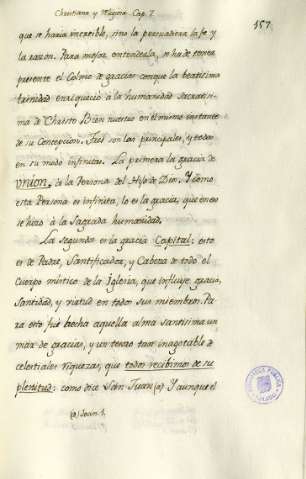 Christiana y Religiosa Cap. 7.
157.
que se haria increible, sino la persuadiera la fe, y
la razon. Para mejor entenderla, se ha de tener
presente el Colmo de gracias conque la beatisima
trinidad enriqueció à la humanidad sacratisi-
ma de Christo Bien nuestro en el mismo instante
de su Concepcion. Tres son las principales, y todas
en su modo infinitas. La primera la gracia de
vnion, à la Persona del Hijo de Dios. Y como
esta Persona es infinita, lo es la gracia, que en eso
se hizo à la Sagrada humanidad.
La segunda es la gracia Capital: esto
es de Padre, Santificador, y Cabeza de todo el
Cuerpo mistico de la Iglesia, que influye gracia,
Santidad, y virtud en todos sus miembros. Pa-
ra esto fue hecha aquella alma santisima un
mar de gracias, y un tesoro tan inagotable de
celestiales riquezas, que todos recibimos de su
plenitud: como dice San Juan (a) Y aunque el
(a) Joan. 1.